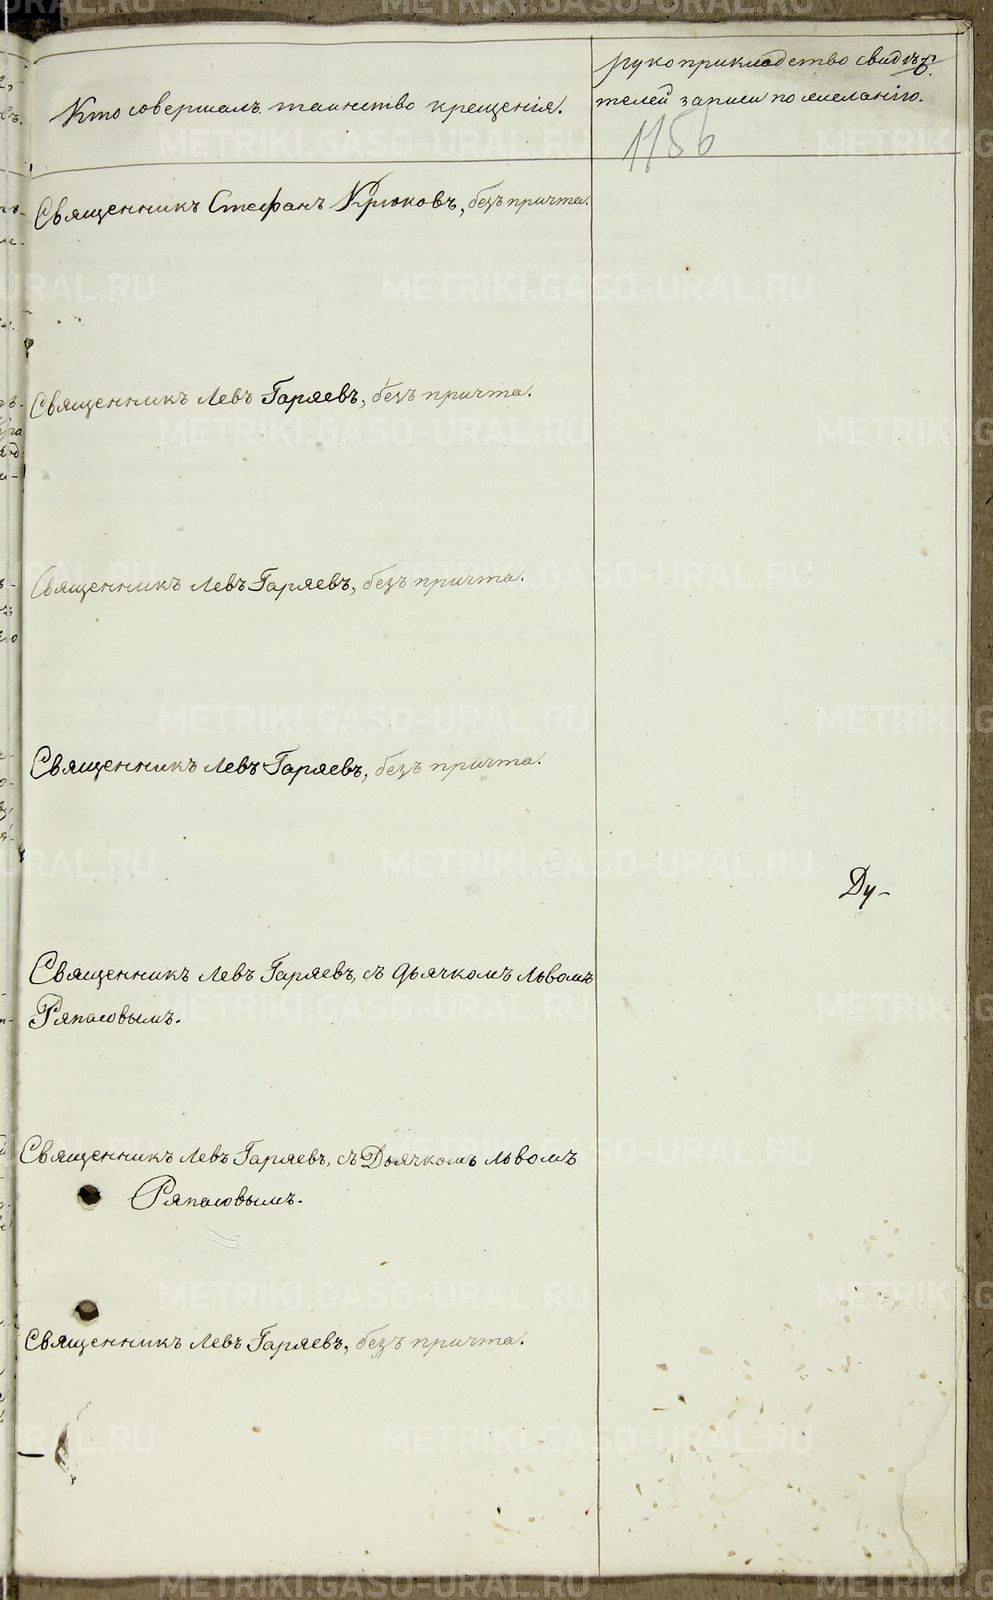 Кто совершалъ таинство крещенія.
рукоприкладство свидѣ-
телей записи по желанію.
1156
Священникъ Стефанъ Крюковъ, безъ причта.
Священникъ Левъ Гаряевъ, безъ причта.
Священникъ Левъ Гаряевъ, безъ причта.
Священникъ Левъ Гаряевъ, безъ причта.
Ду-
Священникъ Левъ Гаряевъ, съ дьячкомъ Львомъ
Ряпасовымъ.
Священникъ Левъ Гаряевъ, съ Дьячкомъ Львомъ
Ряпасовымъ.
Священникъ Левъ Гаряевъ, безъ причта.
METRIKI.GASO-URAL.RU